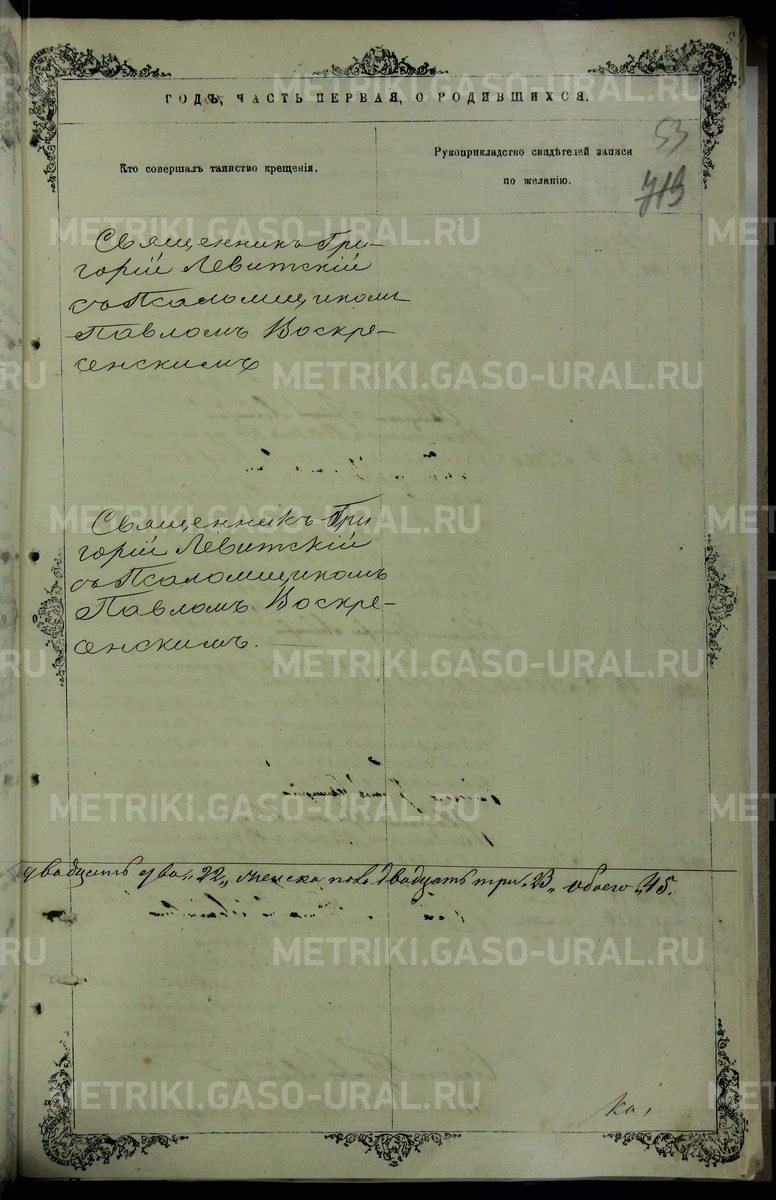 ГОДЪ, ЧАСТЬ ПЕРВАЯ, О РОДИВШИХСЯ.
Кто совершалъ таинство крещенія.
Рукоприкладство свидѣтелей записи
по желанію.
53
713
Священникъ Гри-
горій Левитскій
съ Псаломщикомъ
Павломъ Воскре-
сенскимъ
Священникъ Гри
горій Левитскій
съ Псаломщикомъ
Павломъ Воскре-
сенскимъ.
двадцать два „22„ женска пола двадцать три „23„ обоего „45.
METRIKI.GASO-URAL.RU